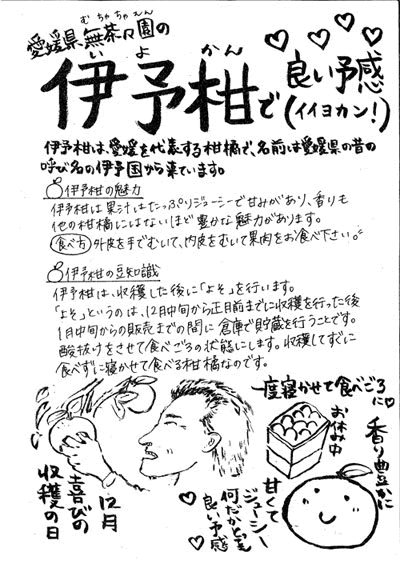 むちゃちゃえん
愛媛県無茶々園の
いよかん
伊予柑で
良い予感
(イイヨカン!)
伊予柑は、愛媛を代表する柑橘で、名前は愛媛県の昔の
呼び名の伊予国から来ています。
伊予柑の魅力
伊予柑は果汁はたっぷりジューシーで甘みがあり、香りも
他の柑橘にはないほど豊かな魅力があります。
食べ方 外皮を手でむいて、内皮をむいて果肉をお食べ下さい。
伊予柑の豆知識
伊予柑は、収穫した後に「よそ」を行います。
「よそ」というのは、12月中旬から正月前までに収穫を行った後
1月中旬からの販売までの間に倉庫で貯蔵を行うことです。
酸抜けをさせて食べごろの状態にします。収穫してすぐに
食べずに寝かせて食べる柑橘なのです。
一度寝かせて食べごろに
お休み中
香り豊かに
甘くて
ジューシー
何だかとっても
良い予感
12月
喜びの
収穫の日